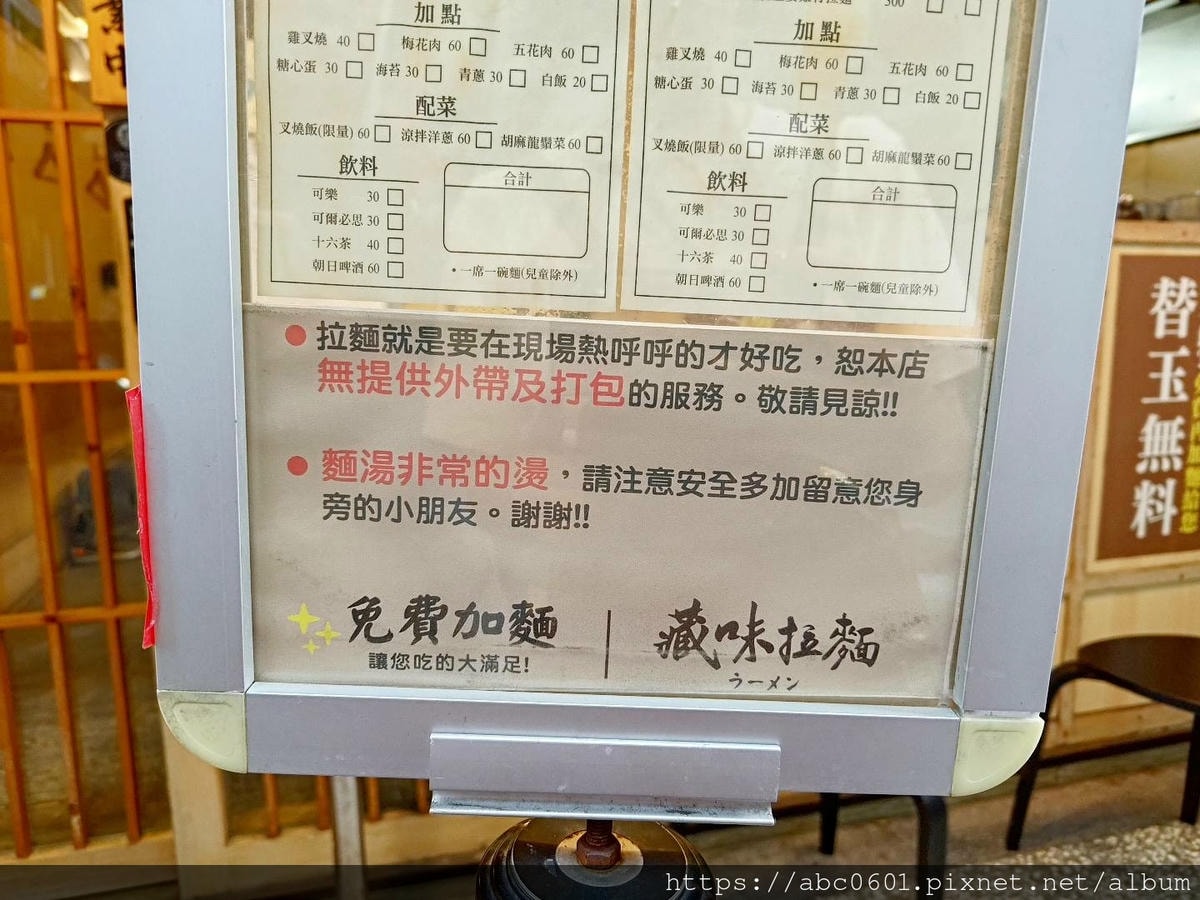 加點
雞叉燒 40 □ 梅花肉 60 □ 五花肉 60 □
糖心蛋 30 □ 海苔 30 □ 青蔥 30 □ 白飯 20 □
配菜
叉燒飯(限量) 60 □ 涼拌洋蔥 60 □ 胡麻龍鬚菜 60 □
飲料
可樂 30 □
可爾必思 30 □
十六茶 40 □
朝日啤酒 60 □
合計
•一席一碗麵(兒童除外)
300 □ □
加點
雞叉燒 40 □ 梅花肉 60 □ 五花肉 60 □
糖心蛋 30 □ 海苔 30 □ 青蔥 30 □ 白飯 20 □
配菜
叉燒飯(限量) 60 □ 涼拌洋蔥 60 □ 胡麻龍鬚菜 60 □
飲料
可樂 30 □
可爾必思 30 □
十六茶 40 □
朝日啤酒 60 □
合計
•一席一碗麵(兒童除外)
● 拉麵就是要在現場熱呼呼的才好吃，恕本店
無提供外帶及打包的服務。敬請見諒!!
● 麵湯非常的燙，請注意安全多加留意您身
旁的小朋友。謝謝!!
免費加麵
讓您吃的大滿足!
藏味拉麵
ラーメン
替玉無料
https://abc0601.pixnet.net/album